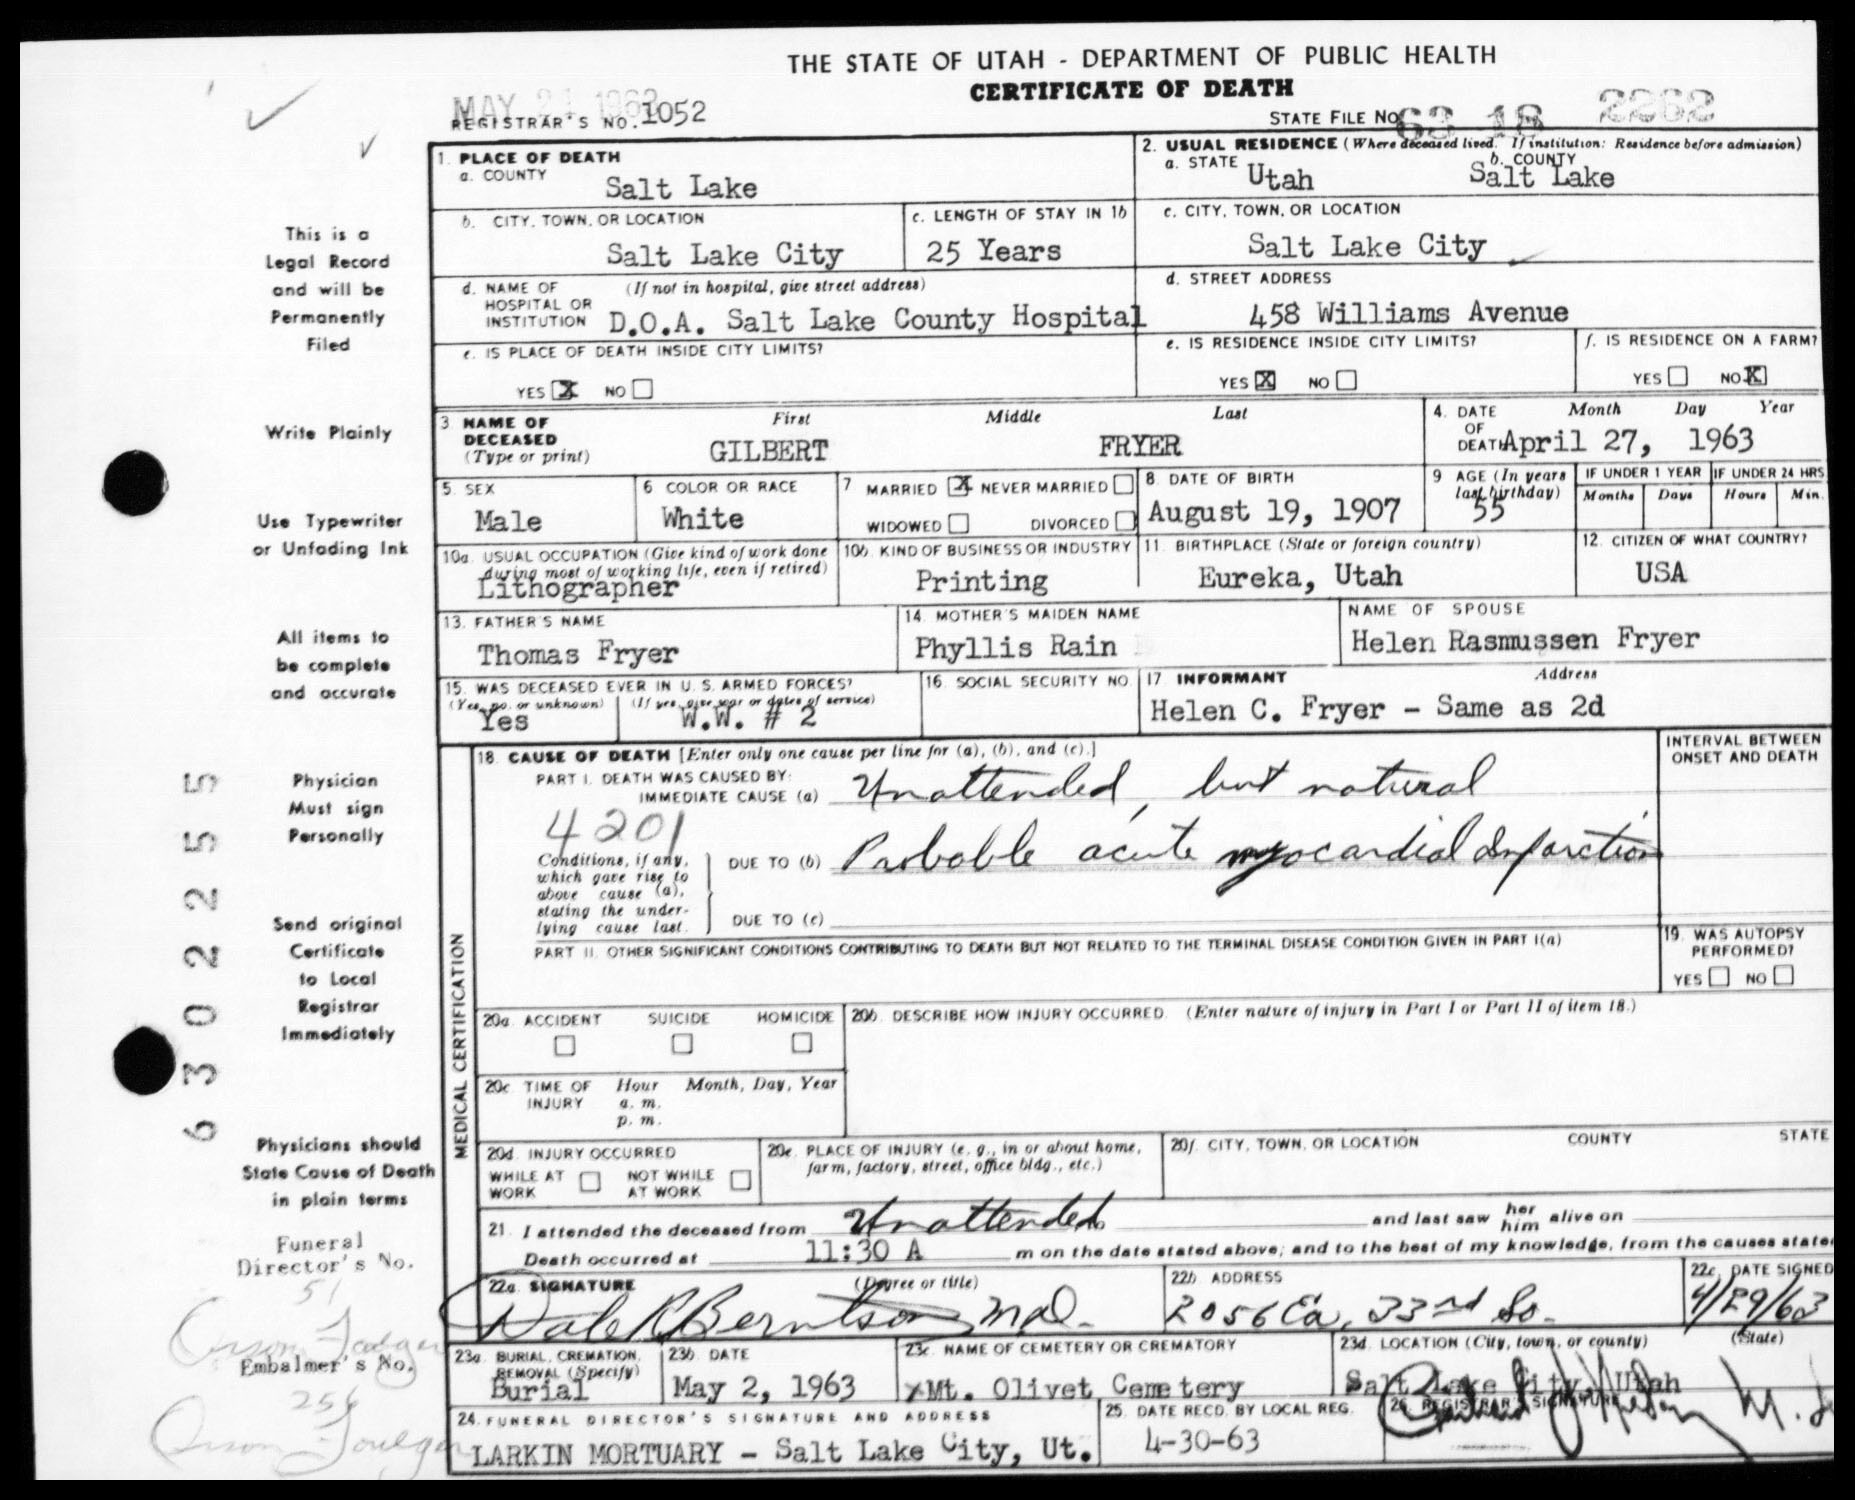 THE STATE OF UTAH - DEPARTMENT OF PUBLIC HEALTH
CERTIFICATE OF DEATH
MAY 21 1963
REGISTRAR'S NO. 1052
STATE FILE NO. 63 18 2262
1. PLACE OF DEATH
a. COUNTY Salt Lake
2. USUAL RESIDENCE (Where deceased lived. If institution: Residence before admission)
a. STATE Utah b. COUNTY Salt Lake
b. CITY, TOWN, OR LOCATION Salt Lake City
c. LENGTH OF STAY IN 1b 25 Years
c. CITY, TOWN, OR LOCATION Salt Lake City
d. NAME OF HOSPITAL OR INSTITUTION (If not in hospital, give street address) D.O.A. Salt Lake County Hospital
d. STREET ADDRESS 458 Williams Avenue
e. IS PLACE OF DEATH INSIDE CITY LIMITS?
YES X NO
e. IS RESIDENCE INSIDE CITY LIMITS?
YES X NO
f. IS RESIDENCE ON A FARM?
YES NO X
3 NAME OF DECEASED (Type or print) First Middle Last
GILBERT FRYER
4. DATE OF DEATH Month Day Year
April 27, 1963
5. SEX Male
6 COLOR OR RACE White
7 MARRIED X NEVER MARRIED
WIDOWED DIVORCED
8. DATE OF BIRTH August 19, 1907
9 AGE (In years last birthday) 55
IF UNDER 1 YEAR Months Days
IF UNDER 24 HRS. Hours Min.
10a. USUAL OCCUPATION (Give kind of work done during most of working life, even if retired) Lithographer
10b. KIND OF BUSINESS OR INDUSTRY Printing
11. BIRTHPLACE (State or foreign country) Eureka, Utah
12. CITIZEN OF WHAT COUNTRY? USA
13. FATHER'S NAME Thomas Fryer
14. MOTHER'S MAIDEN NAME Phyllis Rain
NAME OF SPOUSE Helen Rasmussen Fryer
15. WAS DECEASED EVER IN U. S. ARMED FORCES?
(Yes, no, or unknown) Yes (If yes, give war or dates of service) W.W. # 2
16. SOCIAL SECURITY NO.
17 INFORMANT Address
Helen C. Fryer - Same as 2d
18. CAUSE OF DEATH [Enter only one cause per line for (a), (b), and (c).]
INTERVAL BETWEEN ONSET AND DEATH
PART I. DEATH WAS CAUSED BY:
IMMEDIATE CAUSE (a) Unattended, but natural
4201
Conditions, if any, which gave rise to above cause (a), stating the under-lying cause last.
DUE TO (b) Probable acute myocardial infarction
DUE TO (c)
PART II. OTHER SIGNIFICANT CONDITIONS CONTRIBUTING TO DEATH BUT NOT RELATED TO THE TERMINAL DISEASE CONDITION GIVEN IN PART I(a)
19. WAS AUTOPSY PERFORMED?
YES NO
MEDICAL CERTIFICATION
20a. ACCIDENT SUICIDE HOMICIDE
20b. DESCRIBE HOW INJURY OCCURRED. (Enter nature of injury in Part I or Part II of item 18.)
20c. TIME OF INJURY Hour Month, Day, Year
a. m.
p. m.
20d. INJURY OCCURRED
WHILE AT WORK NOT WHILE AT WORK
20e. PLACE OF INJURY (e. g., in or about home, farm, factory, street, office bldg., etc.)
20f. CITY, TOWN, OR LOCATION COUNTY STATE
21. I attended the deceased from Unattended and last saw her him alive on
Death occurred at 11:30 A m on the date stated above; and to the best of my knowledge, from the causes stated
22a. SIGNATURE (Degree or title)
Dale R Berntson M.D.
22b. ADDRESS 2056 Ea. 33rd So.
22c. DATE SIGNED 4/29/63
23a. BURIAL, CREMATION, REMOVAL (Specify) Burial
23b. DATE May 2, 1963
23c. NAME OF CEMETERY OR CREMATORY Mt. Olivet Cemetery
23d. LOCATION (City, town, or county) (State)
Salt Lake City, Utah
24. FUNERAL DIRECTOR'S SIGNATURE AND ADDRESS
LARKIN MORTUARY - Salt Lake City, Ut.
25. DATE RECD. BY LOCAL REG. 4-30-63
26. REGISTRAR'S SIGNATURE
This is a
Legal Record
and will be
Permanently
Filed
Write Plainly
Use Typewriter
or Unfading Ink
All items to
be complete
and accurate
Physician
Must sign
Personally
Send original
Certificate
to Local
Registrar
Immediately
Physicians should
State Cause of Death
in plain terms
Funeral
Director's No.
51
Embalmer's No.
256
63022555